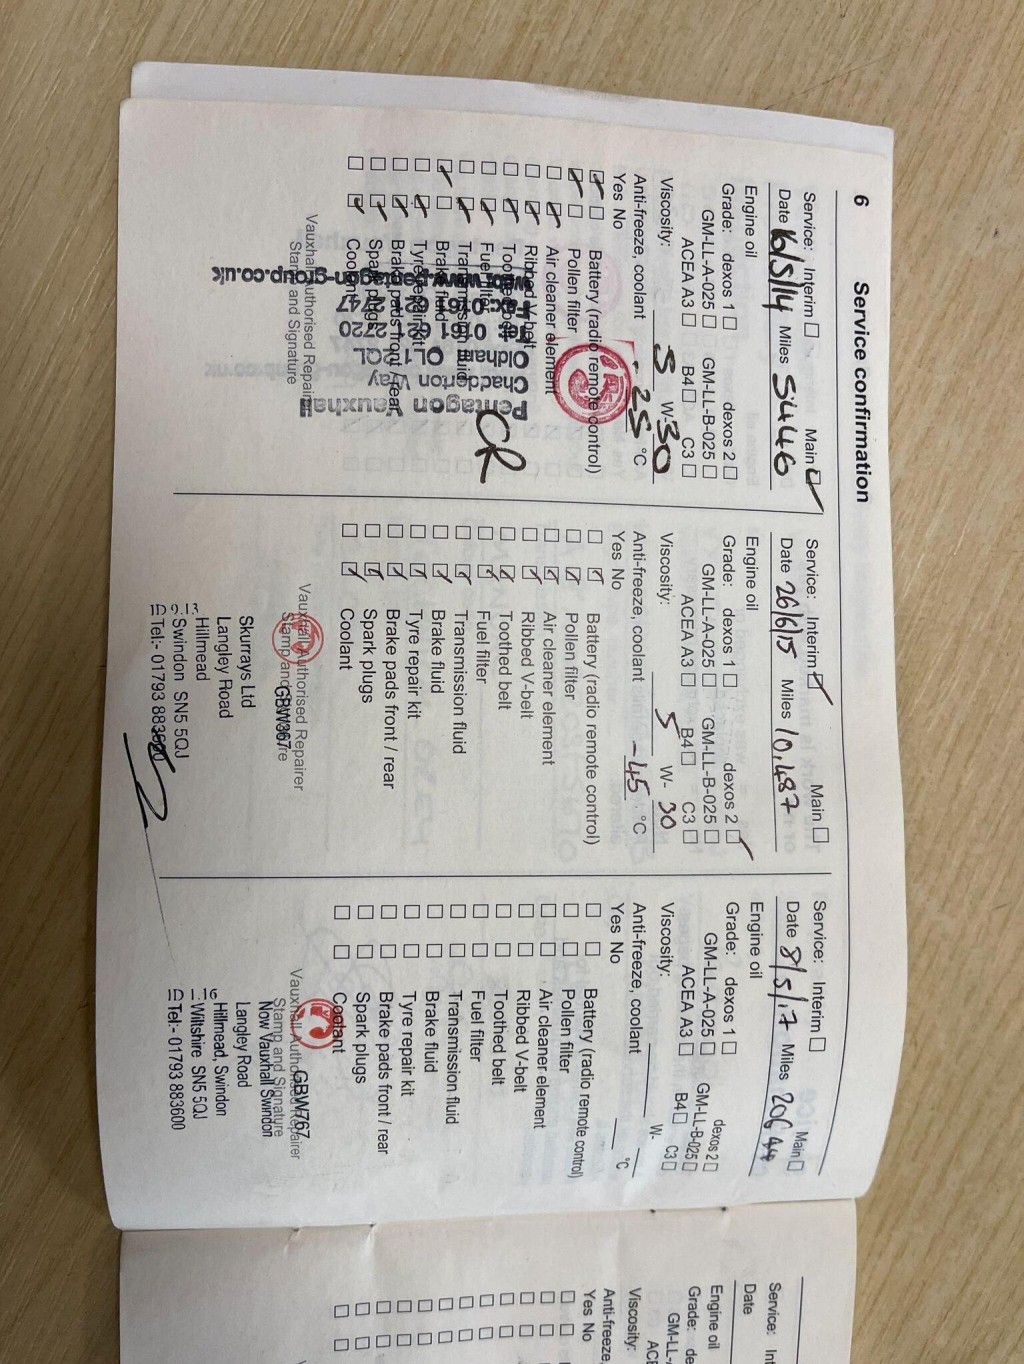 6 Service confirmation
Service: Interim ☐ Main ☑
Date 16/5/14 Miles 5446
Engine oil
Grade: dexos 1 ☐ dexos 2 ☐
GM-LL-A-025 ☐ GM-LL-B-025 ☐
ACEA A3 ☐ B4 ☐ C3 ☐
Viscosity: 5 W-30
Anti-freeze, coolant -25 °C
Yes No
☑ ☐ Battery (radio remote control)
☑ ☐ Pollen filter
☐ ☑ Air cleaner element
☐ ☑ Ribbed V-belt
☐ ☑ Toothed belt
☐ ☑ Fuel filter
☐ ☑ Transmission fluid
☑ ☐ Brake fluid
☐ ☑ Tyre repair kit
☐ ☑ Brake pads front / rear
☐ ☑ Spark plugs
☐ ☑ Coolant
Vauxhall Authorised Repairer
Stamp and Signature
CR
Pentagon Vauxhall
Chadderton Way
Oldham OL1 2QL
2720
2747
Service: Interim ☑ Main ☐
Date 26/6/15 Miles 10,487
Engine oil
Grade: dexos 1 ☐ dexos 2 ☑
GM-LL-A-025 ☐ GM-LL-B-025 ☐
ACEA A3 ☐ B4 ☐ C3 ☐
Viscosity: 5 W- 30
Anti-freeze, coolant -45 °C
Yes No
☐ ☑ Battery (radio remote control)
☐ ☑ Pollen filter
☐ ☑ Air cleaner element
☐ ☑ Ribbed V-belt
☐ ☑ Toothed belt
☐ ☑ Fuel filter
☐ ☑ Transmission fluid
☐ ☑ Brake fluid
☐ ☑ Tyre repair kit
☐ ☑ Brake pads front / rear
☐ ☑ Spark plugs
☐ ☑ Coolant
Vauxhall Authorised Repairer
Stamp and Signature
GBW367
Skurrays Ltd
Langley Road
Hillmead
Swindon SN5 5QJ
Tel:- 01793 883600
Service: Interim ☐ Main ☐
Date 8/5/17 Miles 20644
Engine oil
Grade: dexos 1 ☐ dexos 2 ☐
GM-LL-A-025 ☐ GM-LL-B-025 ☐
ACEA A3 ☐ B4 ☐ C3 ☐
Viscosity: W-
Anti-freeze, coolant °C
Yes No
☐ ☐ Battery (radio remote control)
☐ ☐ Pollen filter
☐ ☐ Air cleaner element
☐ ☐ Ribbed V-belt
☐ ☐ Toothed belt
☐ ☐ Fuel filter
☐ ☐ Transmission fluid
☐ ☐ Brake fluid
☐ ☐ Tyre repair kit
☐ ☐ Brake pads front / rear
☐ ☐ Spark plugs
☐ ☐ Coolant
Vauxhall Authorised Repairer
Stamp and Signature
GBW767
Now Vauxhall Swindon
Langley Road
Hillmead, Swindon
Wiltshire SN5 5QJ
Tel:- 01793 883600
Service:
Date
Engine oil
Grade:
GM-LL-
Viscosity:
Anti-freeze,
Yes No